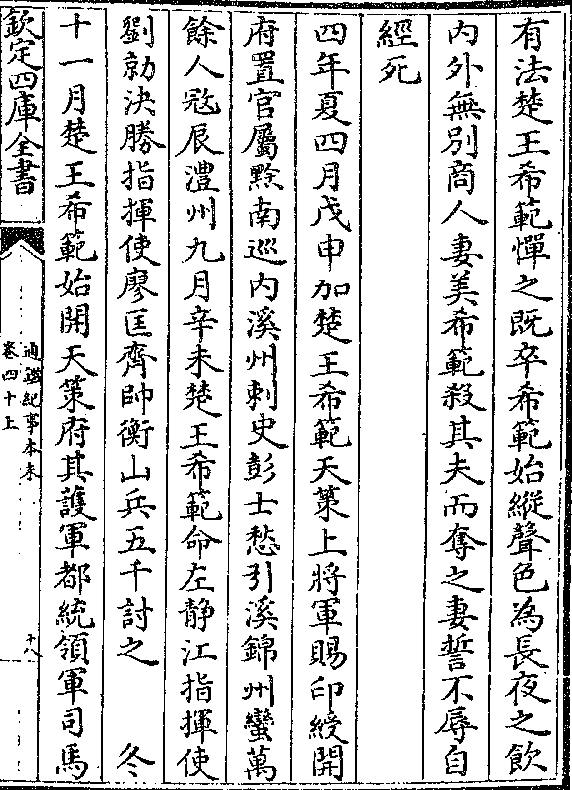 有法楚王希範憚之既卒希範始縱聲色為長夜之飲
内外無別商人妻美希範殺其夫而奪之妻誓不辱自
經死
四年夏四月戊申加楚王希範天策上將軍賜印綬開
府置官屬黔南巡内溪州刺史彭士愁引溪錦州蠻萬
餘人寇辰澧州九月辛未楚王希範命左静江指揮使
劉勍決勝指揮使廖匡齊帥衡山兵五千討之　　冬
十一月楚王希範始開天策府其護軍都統領軍司馬
欽定四庫全書
通鑑紀事本末
卷四十上
十八